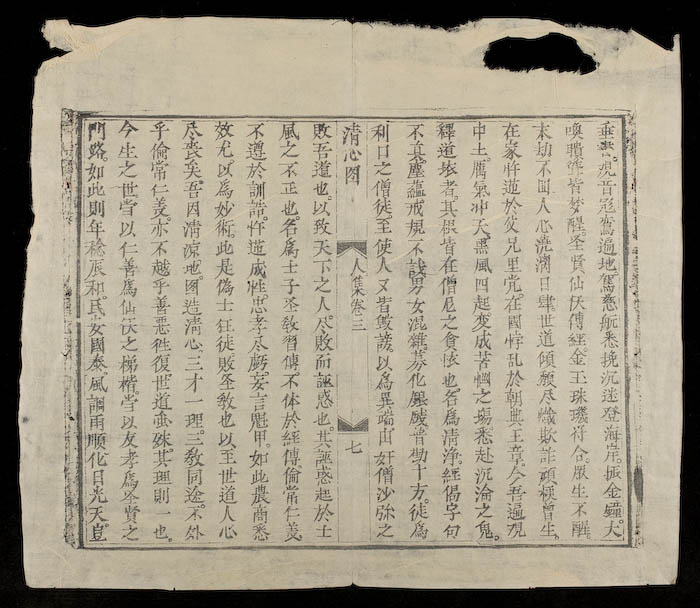 垂訾虎音鸞遍地駕慈航悉挽沉迷登海岸。振金鐘大
喚聵聾皆梦醒。圣賢仙伕傳經金玉珠璣符合。眾生不醒。
末劫不聞人心澆漓日肆世道傾頹尽欺詐頑生。
在家忤逆於父兄里党。在國悖乱於朝典王章。今吾遍覌
中土。厲氣冲天。黑風四起。变成苦惘之塲。悉赴沉淪之鬼。
釋道壊者。其根皆在僧尼之貪恡也。名為清浄。經偈字句
不真。塵蘊戒規不談。男女混雜。募化普勸十方。徒為
利口之僧徒。至使人又皆毀謗。以為異端。由奸僧沙弥之
清心图 人集卷三 七
敗吾道也。以致天下之人。尽敗而誣惑也。其誣惑起於士
風之不正也。名為士子。圣敎習傳。不体於經傳。倫常仁義。
不遵於訓誥。忤逆成性。忠孝尽虧。妄言魁甲。如此農商悉
效尤以為妙術。此是偽士狂徒。敗圣敎也。以至世道人心
尽喪矣。吾因清凉地图。造清心。三才一理。三敎同途。不外
乎倫常仁義。亦不越乎善惡徃復。世道虽殊。其理則一也。
今生之世。當以仁善為仙伕之梯楷。當以友孝為圣賢之
門路。如此則年稔辰和。民安國泰。風調雨順。化日光天。豈